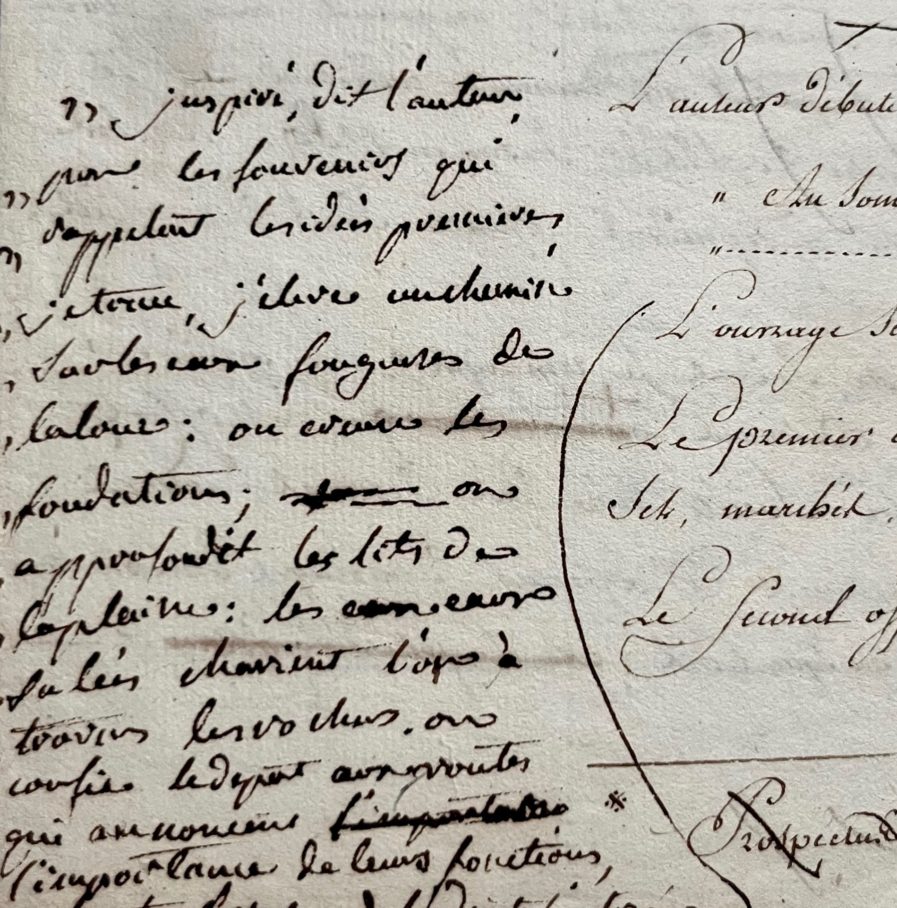 „ juspiré, dit l'auteur
„ par les souvenirs qui
„ rappelent les idées premieres
„ je trace, j'eleve un chemin
„ sur les eaux fougueuses de
„ la loue: on creuse les
„ fondations; on
„ approfondit les lits de
„ la plaine: les eaux
salées charient l'or à
travers les rochers. on
confie le depot aux voutes
qui annoncent l'importance
l'importance de leurs fonctions,
L'auteur débute
" Au Som
"
L'ouvrage
Le premier
Set, marchés,
Le Second off
Prospectus